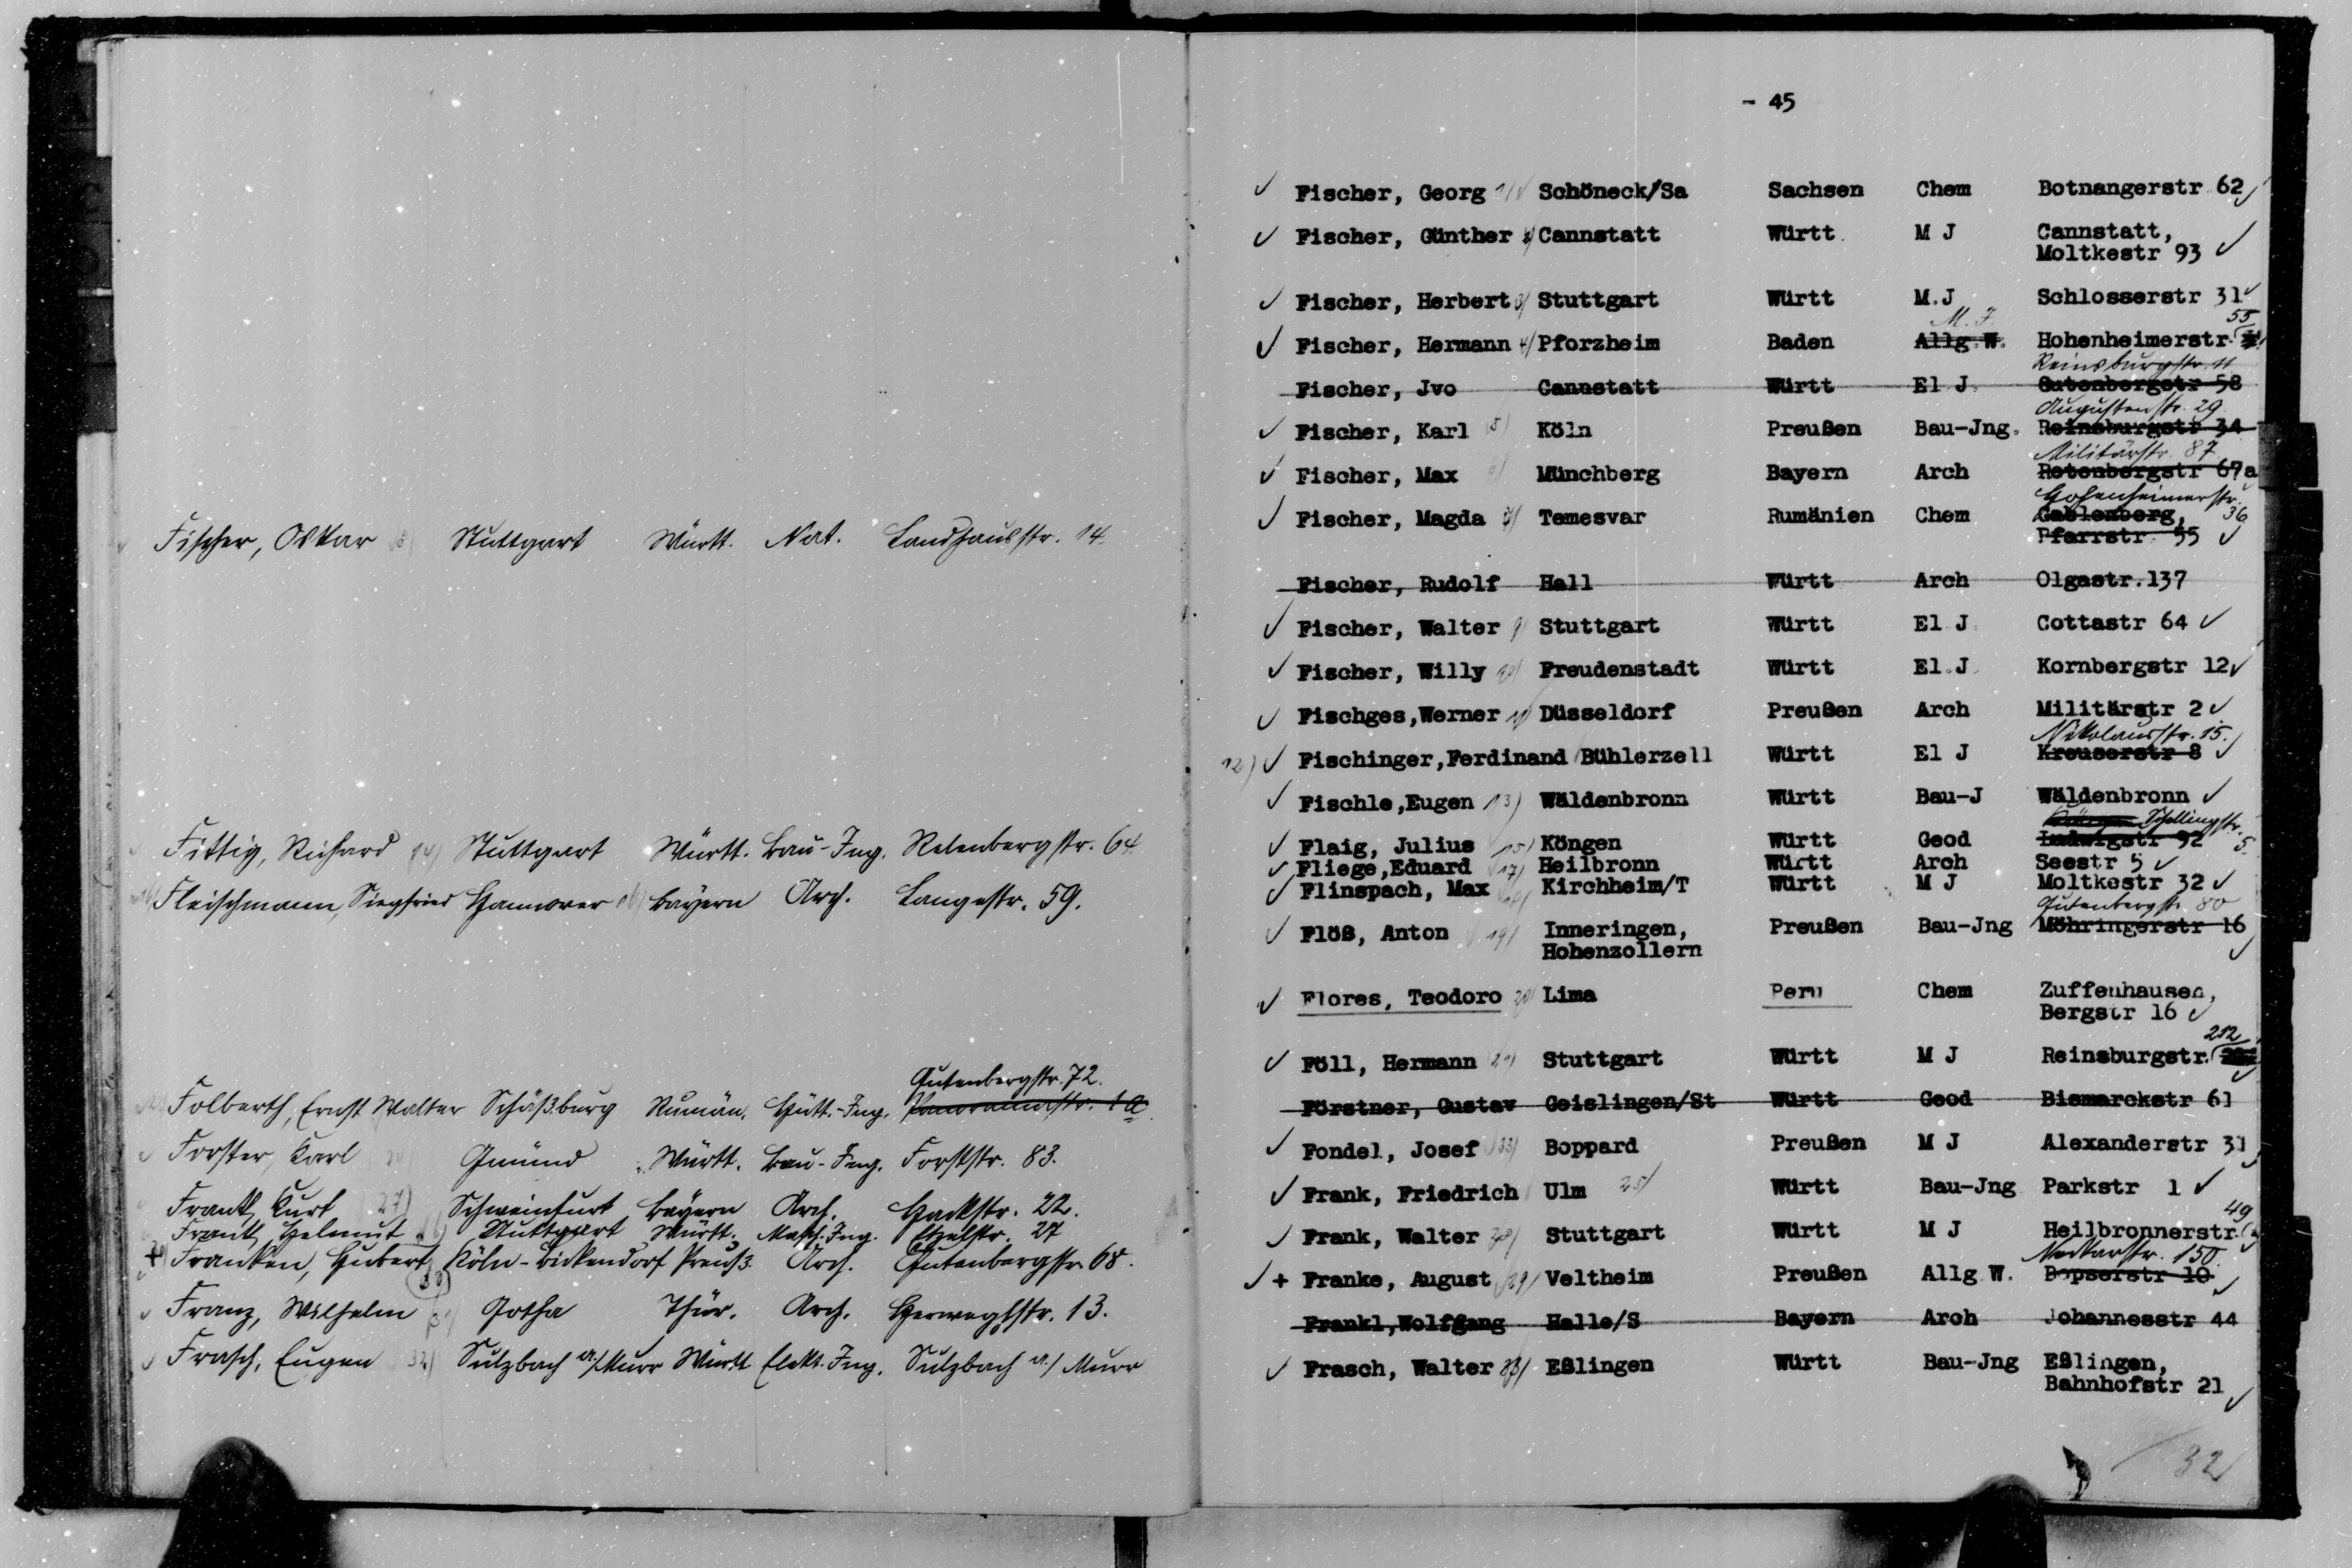 Fischer, Oskar 8) Stuttgart Württ. Nat. Landhausstr. 14.
Fittig, Richard 14) Stuttgart Württ. Bau-Ing. Relenbergstr. 64.
Fleischmann, Siegfried Hannover 16) Bayern Arch. Langestr. 59.
Gutenbergstr. 72.
Folberth, Ernst Walter Schäßburg Rumän. Hütt.-Ing. Panoramastr. 1a
Forster, Karl Gmünd Württ. Bau-Ing. Forststr. 83.
Frank, Kurt 27) Schweinfurt Bayern Arch. Hackstr. 22.
Frank, Helmut Stuttgart Württ. Masch. Ing. 27
+ Franken, Hubert Köln-Bickendorf Preuß. Arch. Gutenbergstr. 68.
30)
Franz, Wilhelm 31) Gotha Thür. Arch. Herweghstr. 13.
Frasch, Eugen 32) Sulzbach a./Murr Württ. Elekt. Ing. Sulzbach a./Murr
- 45
Fischer, Georg 1) Schöneck/Sa Sachsen Chem Botnangerstr 62
Fischer, Günther Cannstatt Württ. M J Cannstatt,
Moltkestr 93
Fischer, Herbert 3) Stuttgart Württ M.J Schlosserstr 31
M. J 55
Fischer, Hermann 4) Pforzheim Baden Allg.W. Hohenheimerstr
Reinsburgstr. 11
Fischer, Jvo Cannstatt Württ El J. Gutenbergstr 58
Augustenstr. 29
Fischer, Karl 5) Köln Preußen Bau-Jng. Reinsburgstr 34
Militärstr. 87
Fischer, Max 6) Münchberg Bayern Arch Rotenbergstr 67a
Hohenheimerstr.
Fischer, Magda 7) Temesvar Rumänien Chem Gablenberg, 36
Pfarrstr. 55
Fischer, Rudolf Hall Württ Arch Olgastr.137
Fischer, Walter 9) Stuttgart Württ El J. Cottastr 64
Fischer, Willy 10) Freudenstadt Württ El.J. Kornbergstr 12
Fischges,Werner 11) Düsseldorf Preußen Arch Militärstr 2
Nikolausstr. 15.
12) Fischinger,Ferdinand Bühlerzell Württ El J Kreuserstr 8
Fischle,Eugen 13) Wäldenbronn Württ Bau-J Wäldenbronn
Schellingstr.
Flaig, Julius 15) Köngen Württ Geod Ludwigstr 92 5.
Fliege,Eduard 17) Heilbronn Württ Arch Seestr 5
Flinspach, Max 18) Kirchheim/T Württ M J Moltkestr 32
Gutenbergstr. 80
Flöß, Anton 19) Inneringen, Preußen Bau-Jng Möhringerstr 16
Hohenzollern
Flores, Teodoro 20) Lima Peru Chem Zuffenhausen,
Bergstr 16
212
Föll, Hermann 21) Stuttgart Württ M J Reinsburgstr.
Förstner, Gustav Geislingen/St Württ Geod Bismarckstr 61
Fondel, Josef Boppard Preußen M J Alexanderstr 31
Frank, Friedrich Ulm 25) Württ Bau-Jng Parkstr 1
49
Frank, Walter 28) Stuttgart Württ M J Heilbronnerstr.
Neckarstr. 150.
+ Franke, August 29) Veltheim Preußen Allg W. Bopserstr 10
Frankl,Wolfgang Halle/S Bayern Arch Johannesstr 44
Frasch, Walter 33) Eßlingen Württ Bau-Jng Eßlingen,
Bahnhofstr 21
32